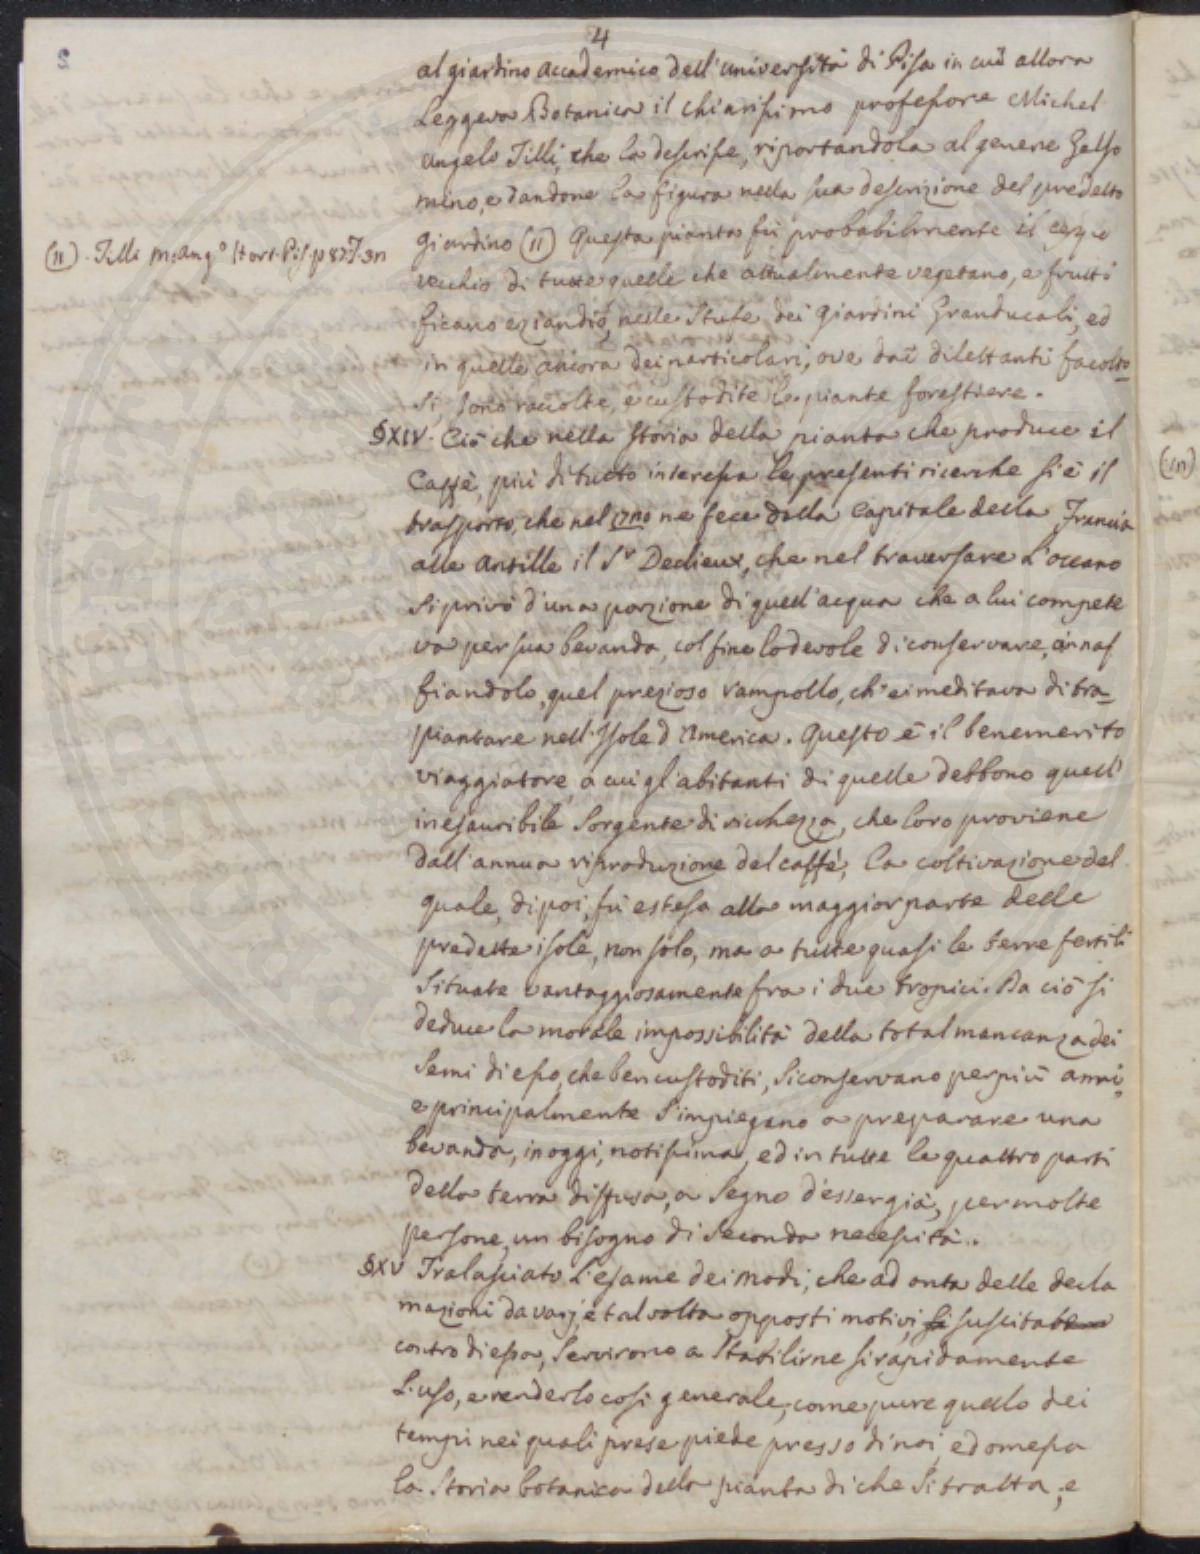 4
al giardino Accademico dell'Università di Pisa in cui allora
Leggeva Botanica il chiarissimo professore Michel
angelo Tilli, che la descrisse, riportandola al genere Gelso
mino, e dandone la figura nella sua descrizione del predetto
(11). Tilli M: Ang.º Hort. Pis. p 87. T. 3n
giardino (11) Questa pianta fù probabilmente il
vecchio di tutte quelle che attualmente vegetano, e frutti
ficano eziandio, nelle Stufe dei Giardini Granducali, ed
in quelle ancora dei particolari, ove dai dilettanti facolto-
si sono raccolte, e custodite le piante forestiere.
§XIV. Ciò che nella storia della pianta che produce il
Caffè, più di tutto interessa le presenti ricerche si è il
trasporto, che nel ne fece dalla Capitale della Francia
alle Antille il S.r Declieux, che nel traversare l'oceano
si privò d'una porzione di quell'acqua che a lui compete
va per sua bevanda, col fine lodevole di conservare, annaf
fiandolo, quel prezioso rampollo, ch'ei meditava di tra-
piantare nell'Isole d'America. Questo è il benemerito
viaggiatore, a cui gl'abitanti di quelle debbono quell'
inesauribile sorgente di ricchezza, che loro proviene
dall'annua riproduzione del caffè, la coltivazione del
quale, di poi, fù estesa alla maggior parte delle
predette isole, non solo, ma a tutte quasi le terre fertili
situate vantaggiosamente fra i due tropici. Da ciò si
deduce la morale impossibilità della total mancanza dei
semi di esso, che ben custoditi, si conservano per più anni,
e principalmente s'impiegano a preparare una
bevanda, in oggi, notissima, ed in tutte le quattro parti
della terra diffusa, a segno d'esser già, per molte
persone, un bisogno di seconda necessità.
§XV Tralasciato l'esame dei modi, che ad onta delle decla
mazioni da varj, e talvolta opposti motivi, si suscitate
contro di essa, servirono a stabilirne sì rapidamente
l'uso, e renderlo così generale, come pure quello dei
tempi nei quali prese piede presso di noi, ed omessa
la storia botanica della pianta di che si tratta, e
(11)